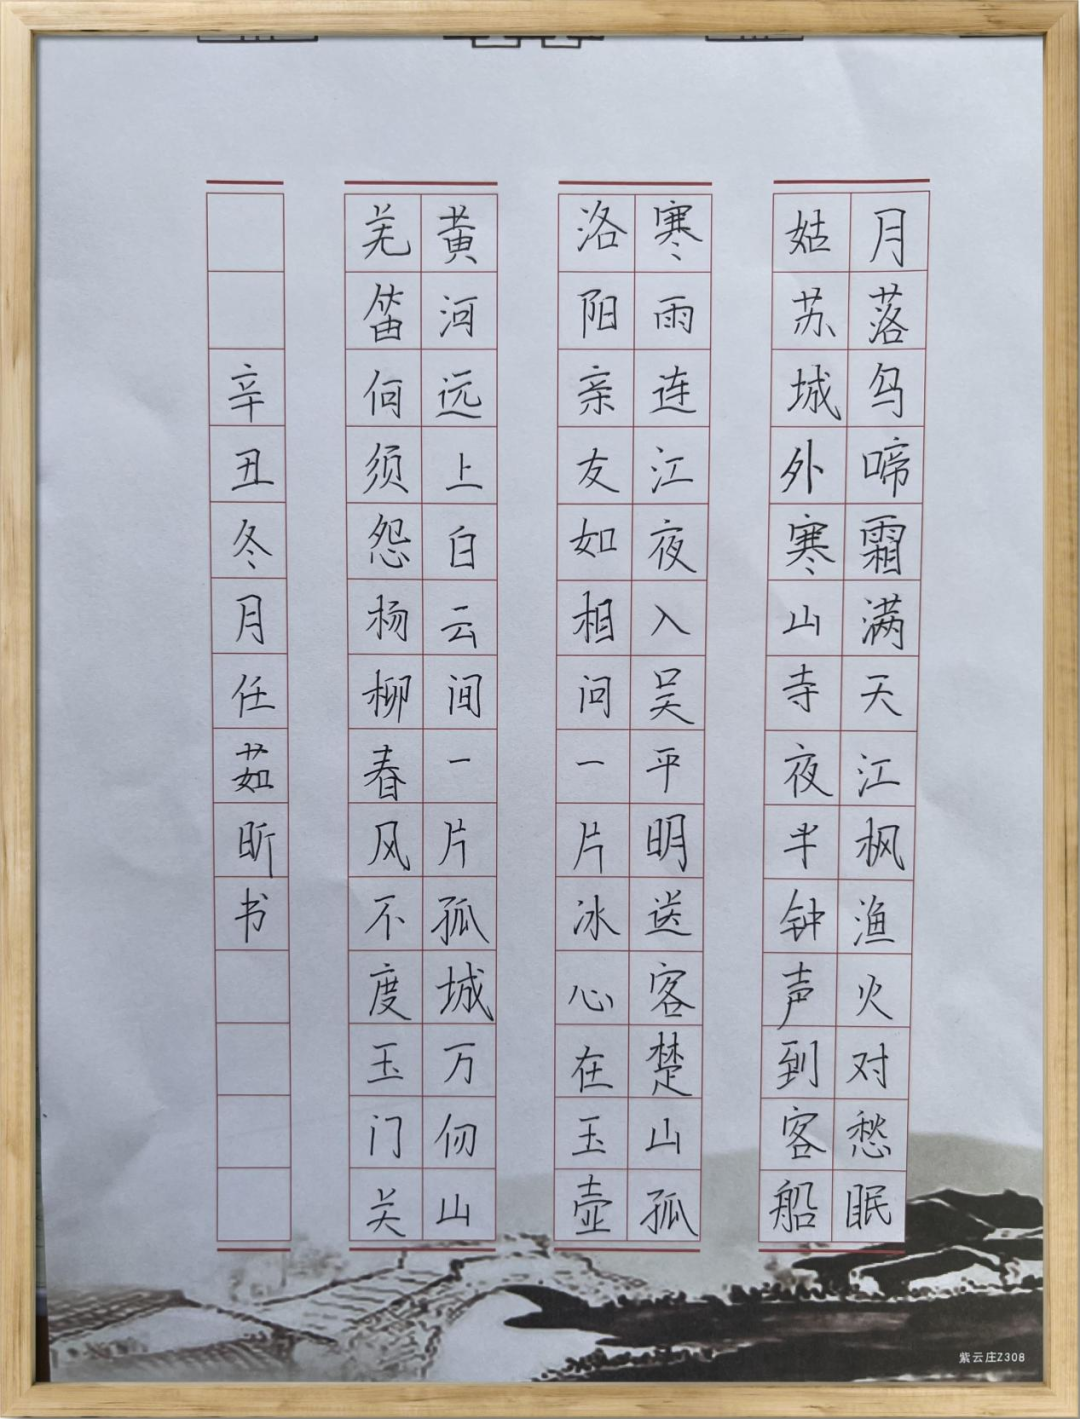 月落乌啼霜满天江枫渔火对愁眠
姑苏城外寒山寺夜半钟声到客船
寒雨连江夜入吴平明送客楚山孤
洛阳亲友如相问一片冰心在玉壶
黄河远上白云间一片孤城万仞山
羌笛何须怨杨柳春风不度玉门关
辛丑冬月任茹昕书
紫云庄Z308